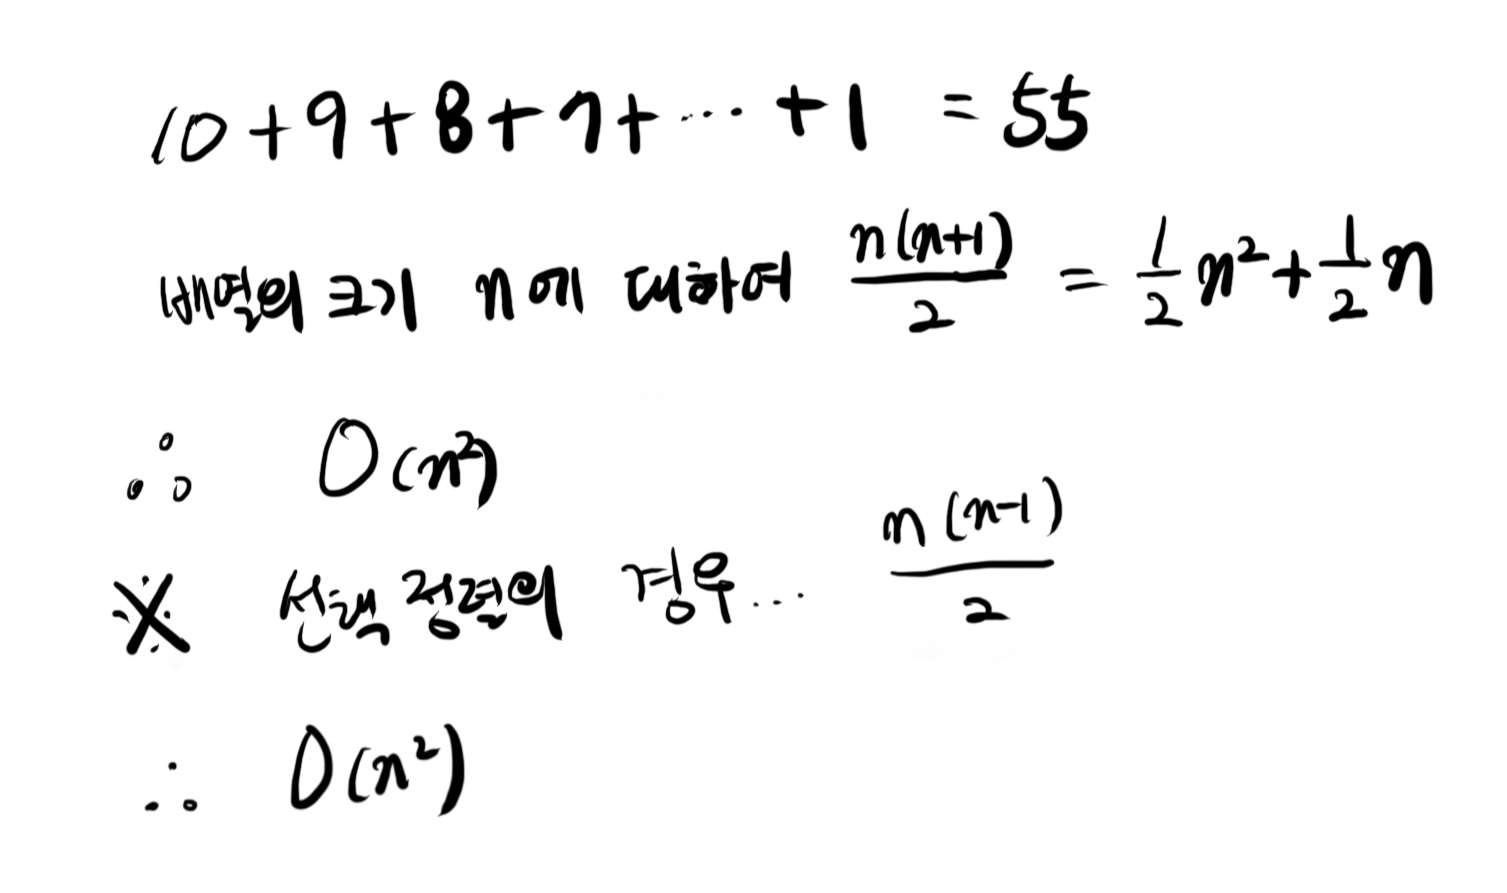 10+9+8+7+⋯+1 = 55
배열의 크기 n에 대하여 n(n+1)/2 = 1/2 n²+1/2 n
∴ O(n²)
※ 선택 정렬의 경우... n(n-1)/2
∴ O(n²)